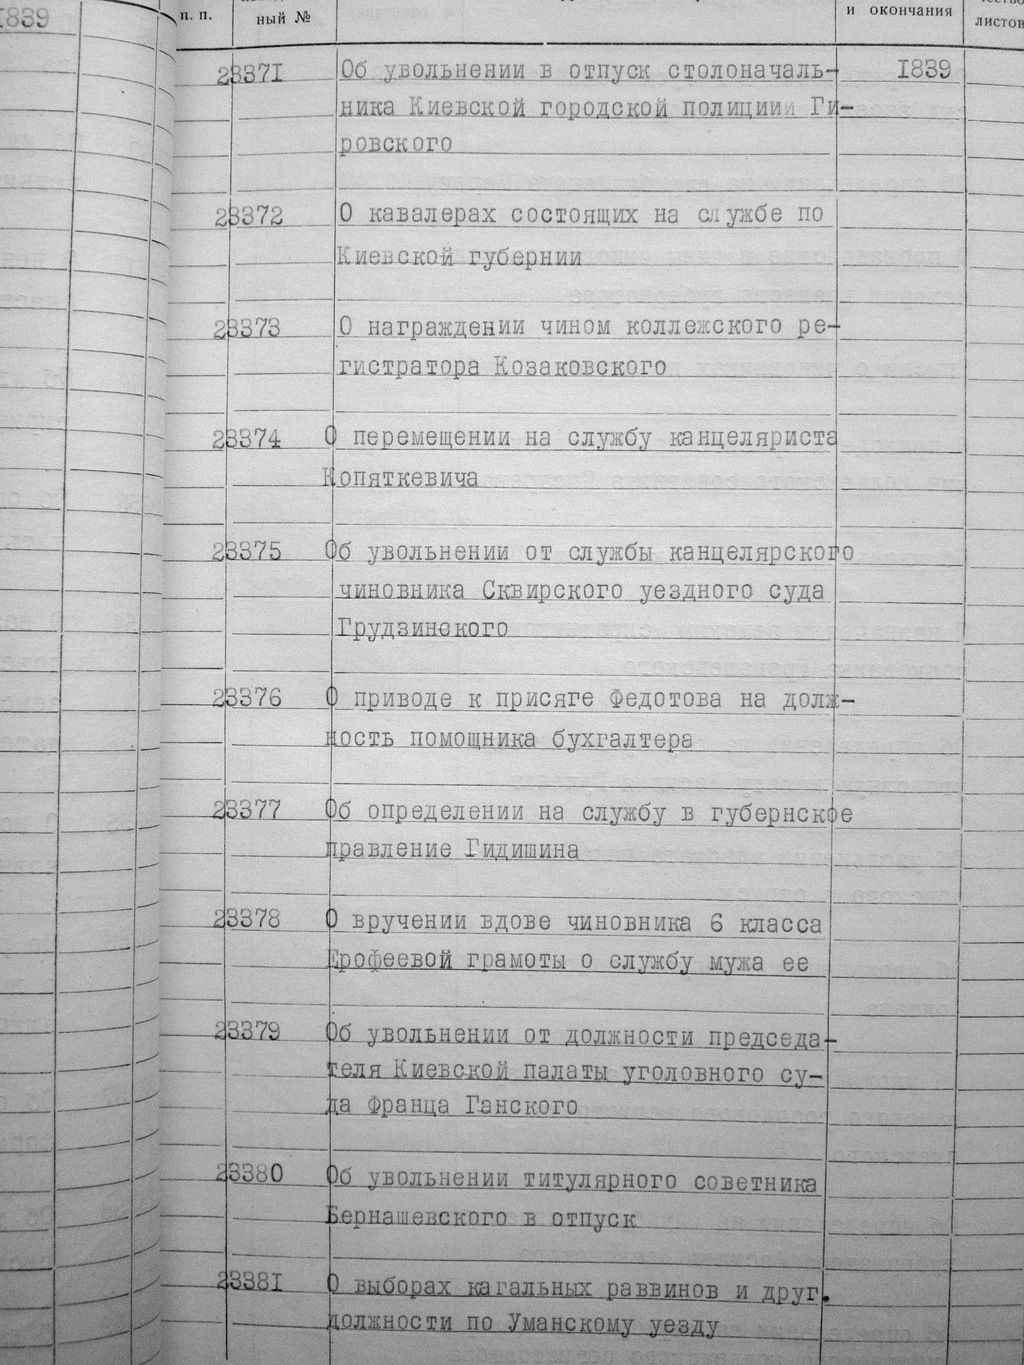 1839
п. п. ный № и окончания листов
23371 Об увольнении в отпуск столоначаль- 1839
ника Киевской городской полициии Ги-
ровского
23372 О кавалерах состоящих на службе по
Киевской губернии
23373 О награждении чином коллежского ре-
гистратора Козаковского
23374 О перемещении на службу канцеляриста
Копяткевича
23375 Об увольнении от службы канцелярского
чиновника Сквирского уездного суда
Грудзинского
23376 О приводе к присяге Федотова на долж-
ность помощника бухгалтера
23377 Об определении на службу в губернское
правление Гидишина
23378 О вручении вдове чиновника 6 класса
Ерофеевой грамоты о службу мужа ее
23379 Об увольнении от должности председа-
теля Киевской палаты уголовного су-
да Франца Ганского
23380 Об увольнении титулярного советника
Бернашевского в отпуск
23381 О выборах кагальных раввинов и друг.
должности по Уманскому уезду